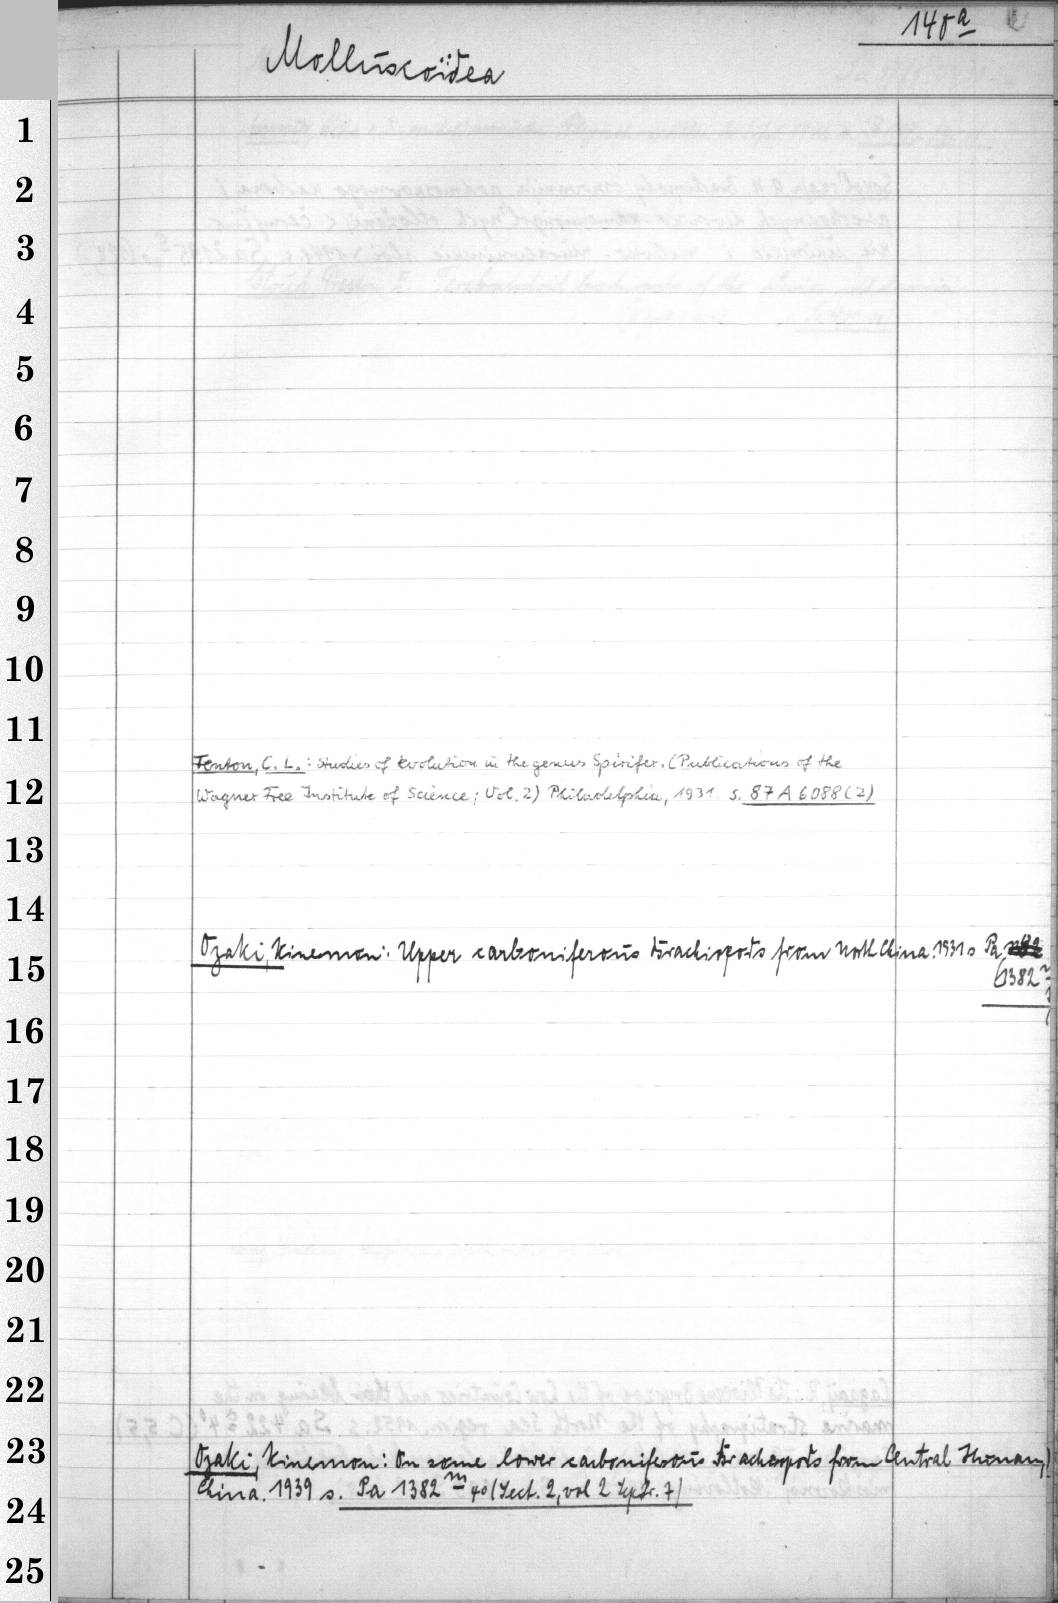 140a
Molluscoïdea
1
2
3
4
5
6
7
8
9
10
11
Fenton, C. L.: Studies of Evolution in the genus Spirifer. (Publications of the
12
Wagner Free Institute of Science; Vol. 2) Philadelphia, 1931. s. 87 A 6088 (2)
13
14
Ozaki, Kinemon: Upper carboniferous Brachiopods from North China. 1931 s Pa
15
1382
16
17
18
19
20
21
22
23
Ozaki, Kinemon: On some lower carboniferous Brachiopods from Central Hunan,
China. 1939 s. Pa 1382 m 40 (Sect. 2, vol 2 Nr. 7)
24
25